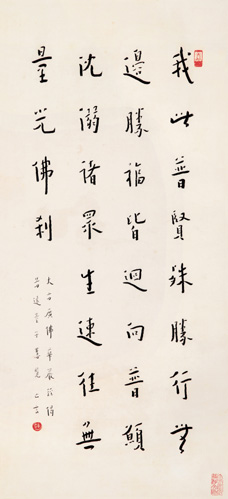 我此普賢殊勝行無
邊勝福皆迴向普願
沈溺諸眾生速往無
量光佛剎
大方廣佛華嚴經偈